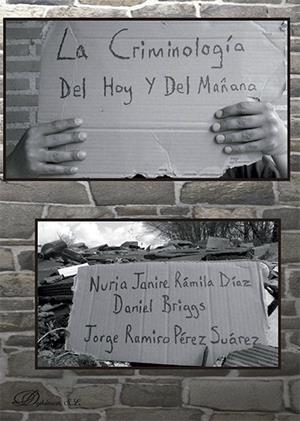 La Criminología
Del Hoy Y Del Mañana
Nuria Janire Rámila Díaz
Daniel Briggs
Jorge Ramiro Pérez Suárez
Dykinson, S.L.